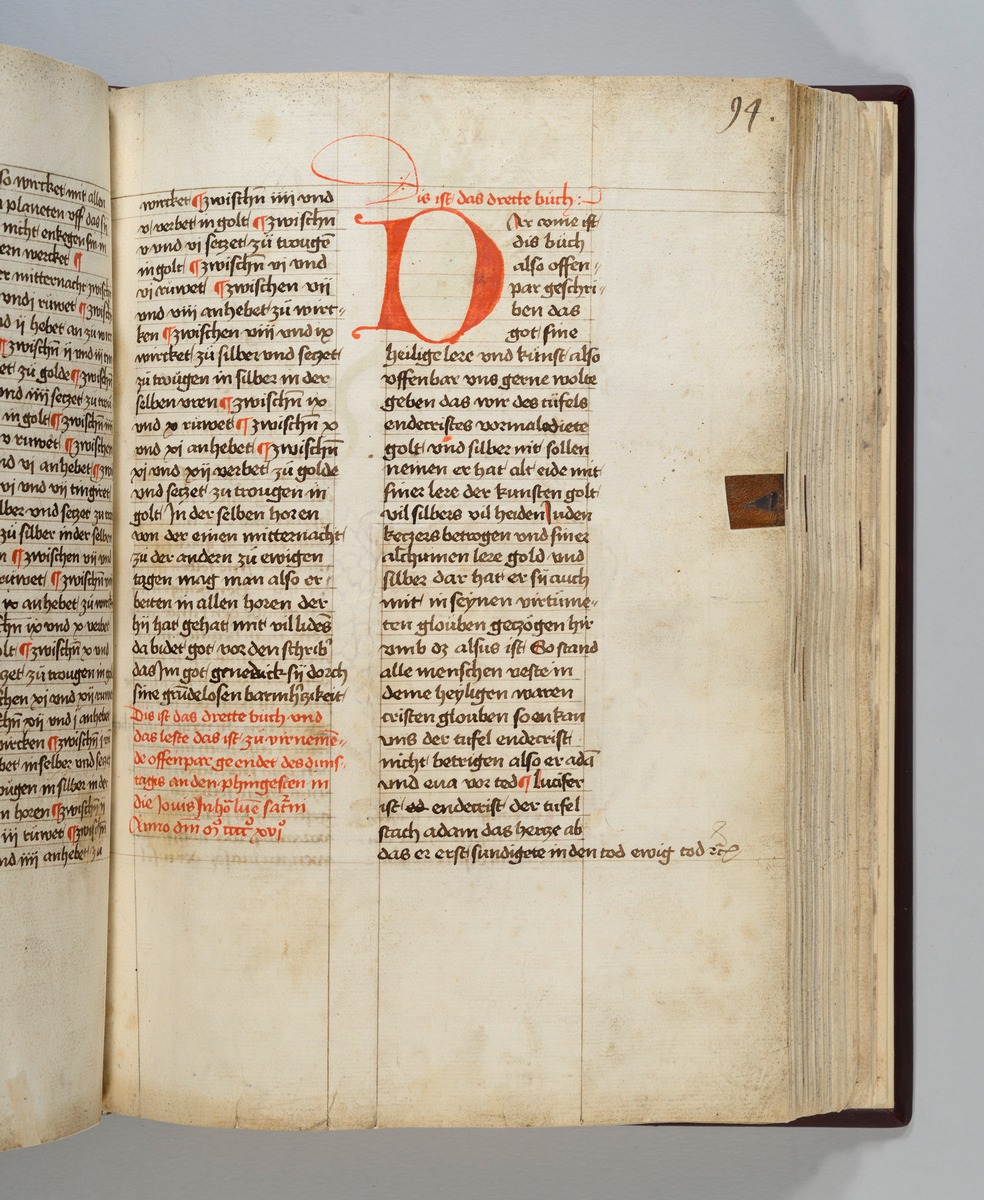 94.
so wircket mit allen
planeten vff das
nicht enkegen
ern wercket ¶
er mitternacht
vnd i rüwet ¶
ii hebet an zu
¶zwischn̄ ii vnd iii
zu golde ¶
nd iiii setzet zu
in golt ¶zwischn̄
v rüwet ¶
nd vi anhebet ¶
vi vnd vii tingiret
silber vnd setzet zu
zü silber in der selben
¶zwischen vii vnd
rüwet ¶zwischn̄
ix anhebet zü
ix vnd x verbet
¶zwischn̄ x vnd
setzet zu trougen in
xi vnd xii
xii vnd i anhebet
wircken ¶zwischn̄
in selber vnd
in silber in der
horen ¶zwischn̄
iii rüwet ¶zwischn̄
nd iiii anhebet zu
wircket ¶zwischn̄ iiii vnd
v verbet in golt ¶zwischn̄
v vnd vi setzet zü trougē
in golt ¶zwischn̄ vi vnd
vi rüwet ¶zwischen vii
vnd viii anhebet zü wirt-
ken ¶zwischen viii vnd ix
wircket zü silber vnd setzet
zü troügen in silber in der
selben vren ¶zwischn̄ ix
vnd x rüwet ¶zwischn̄ x
vnd xi anhebet ¶zwischn̄
xi vnd xii verbet zü golde
vnd setzet zu trougen in
golt In der selben horen
von der einen mitternacht
zü der andern zü ewigen
tagen mag man also er-
beiten in allen horen der
hij hat gehat mit vil lides
da bidet got vor den schrib'
das Im got genedick sij dorch
sine grūdelosen barmh'zikeit
Dis ist das drette büch vnd
das leste das ist zü virneme-
de offenpar ge endet des duns
tagis an den phingesten in
die Jouis In hō luē satr̄ni
Anno dm̄ mͦ ccccͦ xviͦ
Dis ist das drette büch :
DAr vme ist
dis büch
also offen-
par geschri-
ben das
got sine
heilige lere vnd künst also
vffenbar vns gerne wolte
geben das wir des tüfels
endecristes vormalediete
golt vnd silber nit sollen
nemen er hat alt eide mit
siner lere der kunsten golt
vil silbers vil heiden Iuden
ketzers betrogen vnd siner
alchumen lere gold vnd
silber dar hat er sü auch
mit in seynen virtüme-
ten gloüben getzogen hir
vmb dz alsus ist So stand
alle menschen veste in
deme heyligen waren
cristen glouben so en kan
vns der tüfel endecrist
nicht betrigen also er adā
vnd eua vor ted ¶ lucifer
ist endecrist der tüfel
stach adam das hertze ab
das er erst sundigete in den tod ewig tod